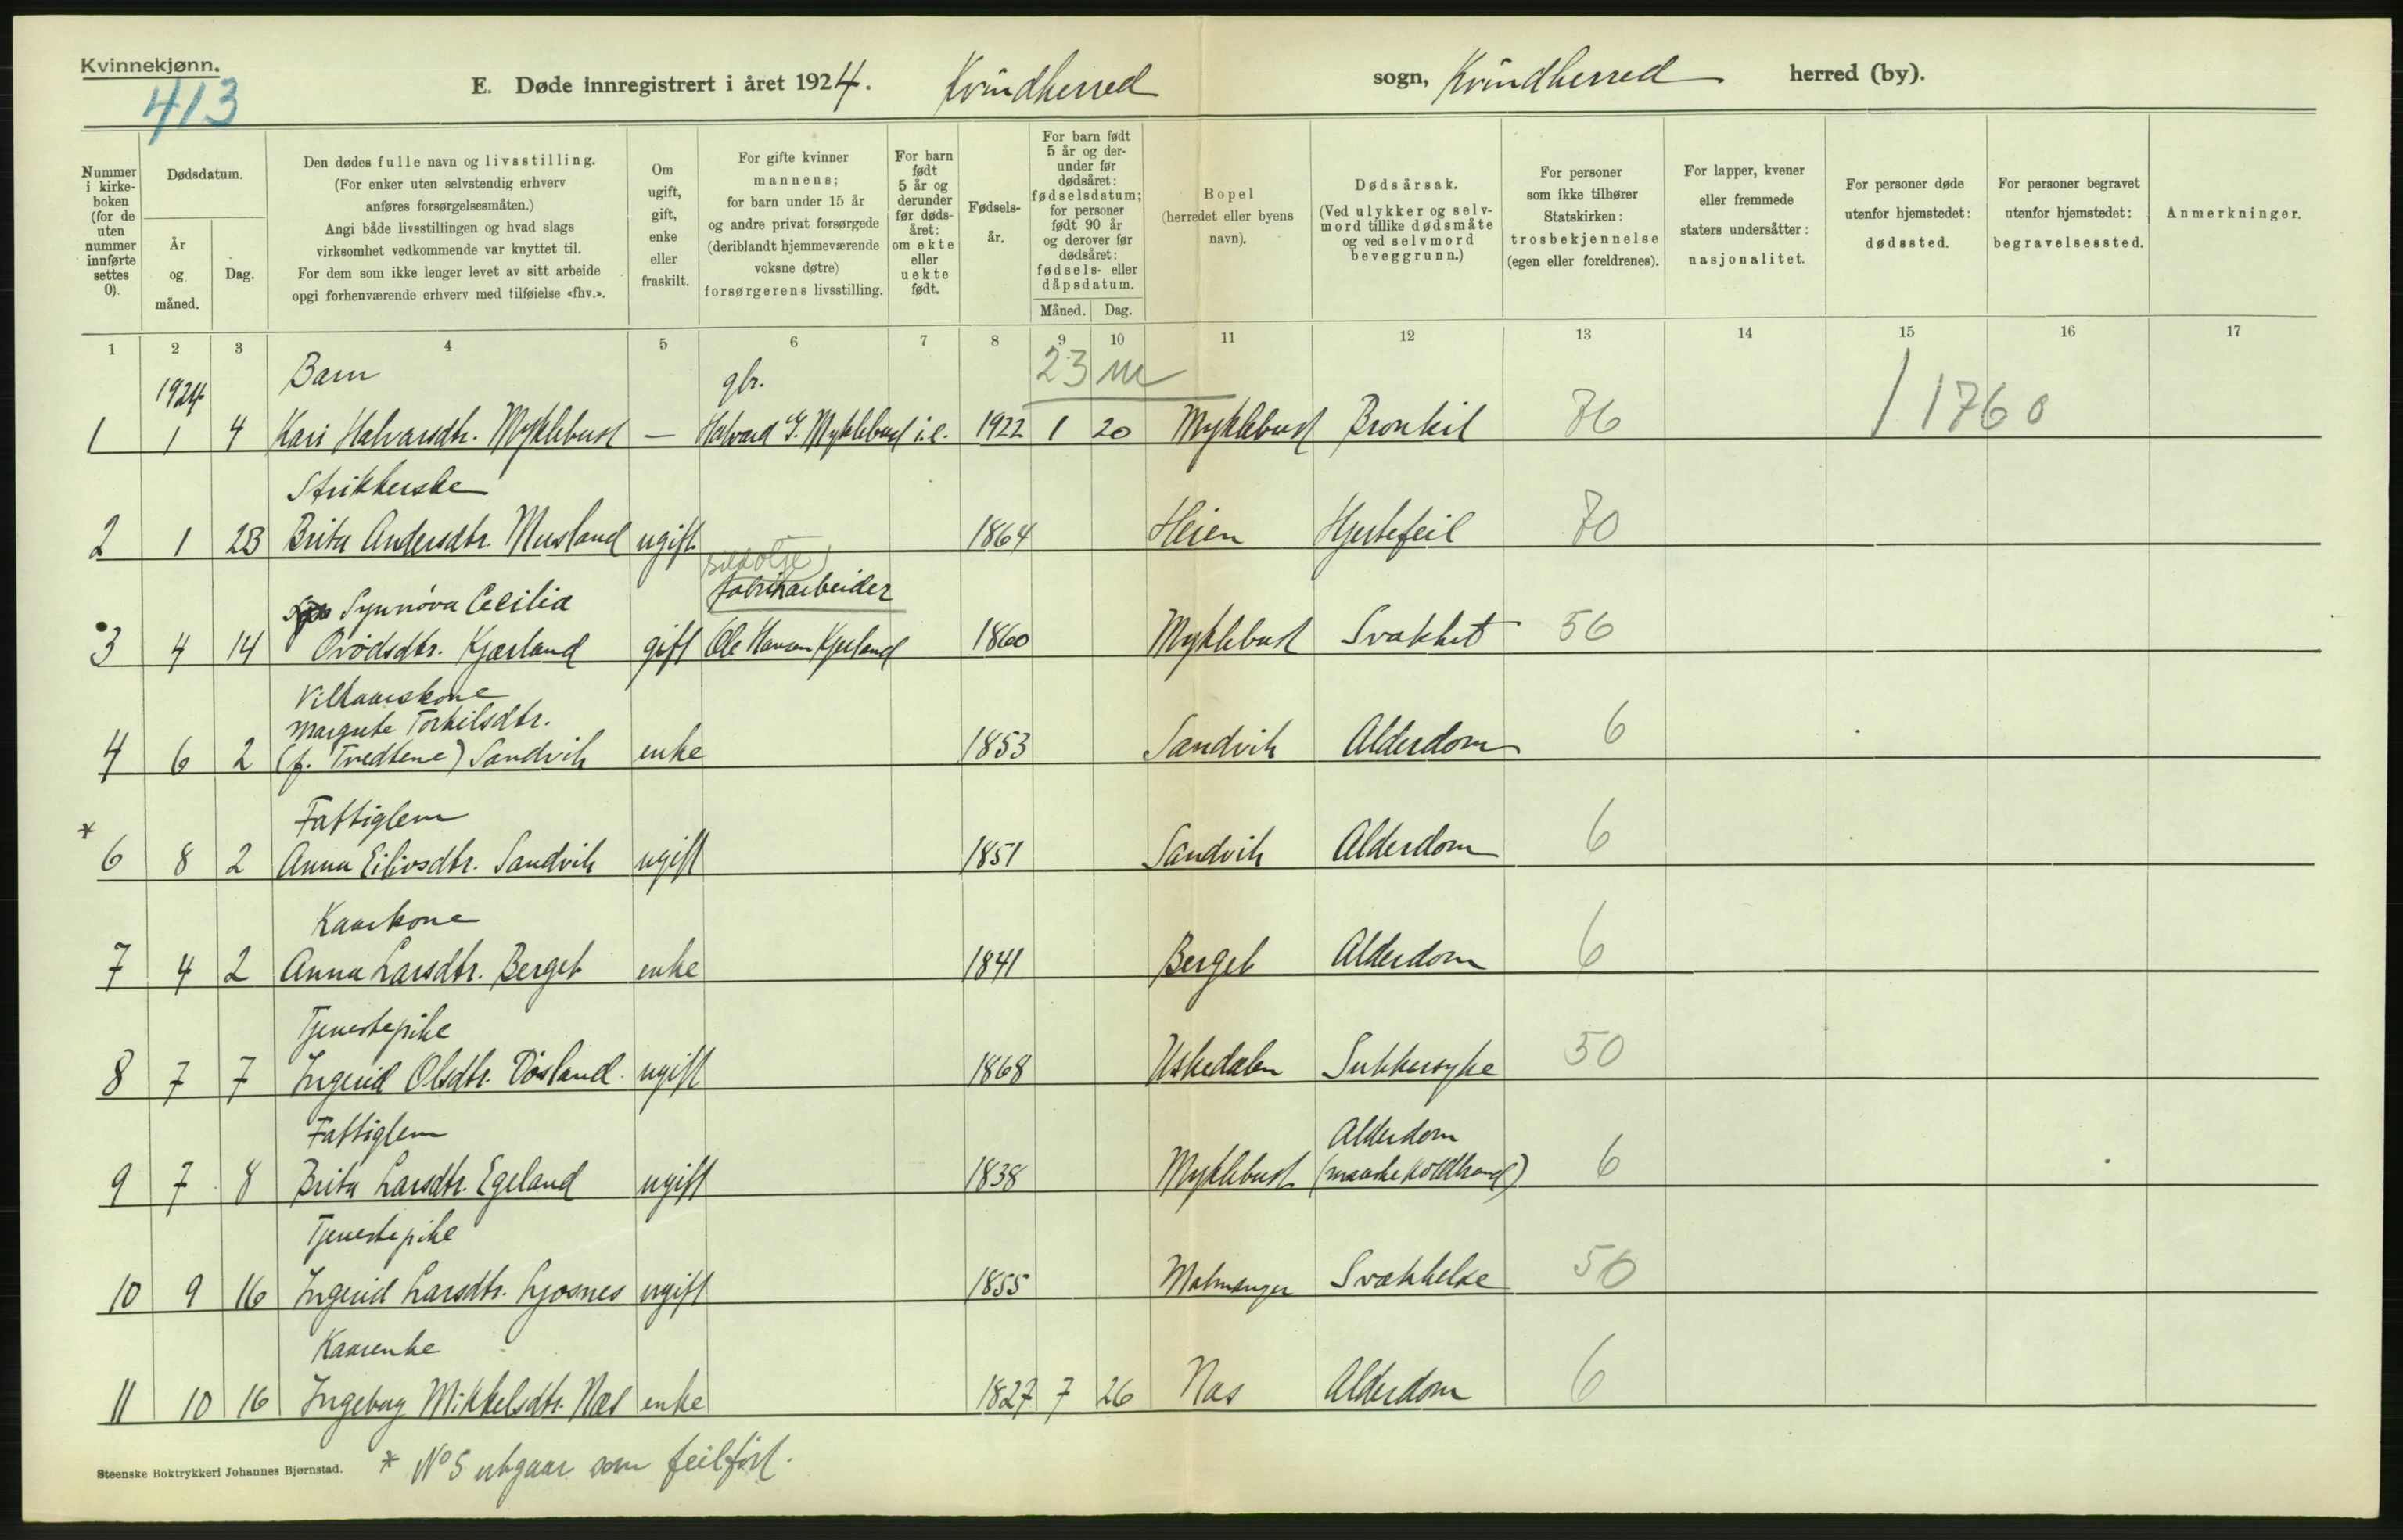 Kvinnekjønn.
413
E. Døde innregistrert i året 1924. Kvindherred sogn, Kvindherred herred (by).
Nummer i kirkeboken (for de uten nummer innførte settes 0).
Dødsdatum.
År og måned.
Dag.
Den dødes fulle navn og livsstilling.
(For enker uten selvstendig erhverv anføres forsørgelsesmåten.)
Angi både livsstillingen og hvad slags virksomhet vedkommende var knyttet til.
For dem som ikke lenger levet av sitt arbeide opgi forhenværende erhverv med tilføielse «fhv.».
Om ugift, gift, enke eller fraskilt.
For gifte kvinner mannens; for barn under 15 år og andre privat forsørgede (deriblandt hjemmeværende voksne døtre) forsørgerens livsstilling.
For barn født 5 år og derunder før dødsåret: om ekte eller uekte født.
Fødselsår.
For barn født 5 år og derunder før dødsåret: fødselsdatum; for personer født 90 år og derover før dødsåret: fødsels- eller dåpsdatum.
Måned. Dag.
Bopel (herredet eller byens navn).
Dødsårsak. (Ved ulykker og selvmord tillike dødsmåte og ved selvmord beveggrunn.)
For personer som ikke tilhører Statskirken: trosbekjennelse (egen eller foreldrenes).
For lapper, kvener eller fremmede staters undersåtter: nasjonalitet.
For personer døde utenfor hjemstedet: dødssted.
For personer begravet utenfor hjemstedet: begravelsessted.
Anmerkninger.
1 2 3 4 5 6 7 8 9 10 11 12 13 14 15 16 17
1924 Barn gbr. 23 m
1 1 4 Kari Halvarsdtr. Myklebust — Halvard G. Myklebust i.e. 1922 1 20 Myklebust Bronkit 76 / 1760
Strikkerske
2 1 23 Brita Andersdtr. Musland ugift 1864 Heien Hjertefeil 70
sildolje
Synnøva Cecilia fabrikarbeider
3 4 14 Ovødsdtr. Kjærland gift Ole Hansen Kjerland 1860 Myklebust Svakhet 56
Vilkaarskone
Margrete Torkilsdtr.
4 6 2 (f. Tvedtene) Sandvik enke 1853 Sandvik Alderdom 6
Fattiglem
* 6 8 2 Anna Eilivsdtr. Sandvik ugift 1851 Sandvik Alderdom 6
Kaarkone
7 4 2 Anna Larsdtr. Berget enke 1841 Berget Alderdom 6
Tjenestepike
8 7 7 Ingerid Olsdtr. Døsland ugift 1868 Uskedalen Sukkersyke 50
Fattiglem Alderdom
9 7 8 Brita Larsdtr. Egeland ugift 1838 Myklebust (maaske koldbrand) 6
Tjenestepike
10 9 16 Ingerid Larsdtr. Ljosnes ugift 1855 Malmanger Svækkelse 56
Kaarenke
11 10 16 Ingeborg Mikkelsdtr. Næs enke 1827 7 26 Næs Alderdom 6
Steenske Boktrykkeri Johannes Bjørnstad.
* No 5 utgaar som feilført.